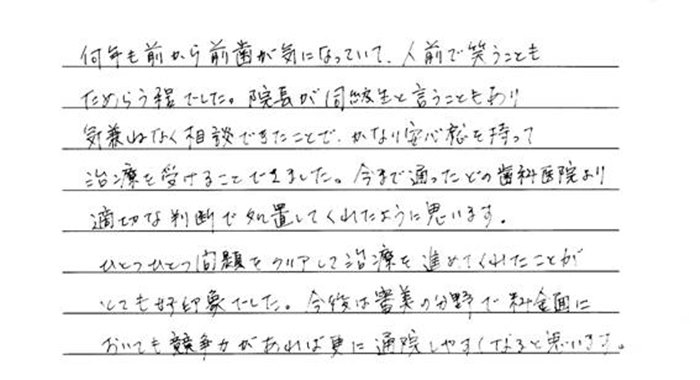 何年も前から前歯が気になっていて、人前で笑うことも
ためらう程でした。院長が同級生と言うこともあり
気兼ねなく相談できたことで、かなり安心感を持って
治療を受けることできました。今まで通ったどの歯科医院より
適切な判断で処置してくれたように思います。
ひとつひとつ問題をクリアして治療を進めてくれたことが
とても好印象でした。今後は審美の分野で料金面に
おいても競争力があれば更に通院しやすくなると思います。